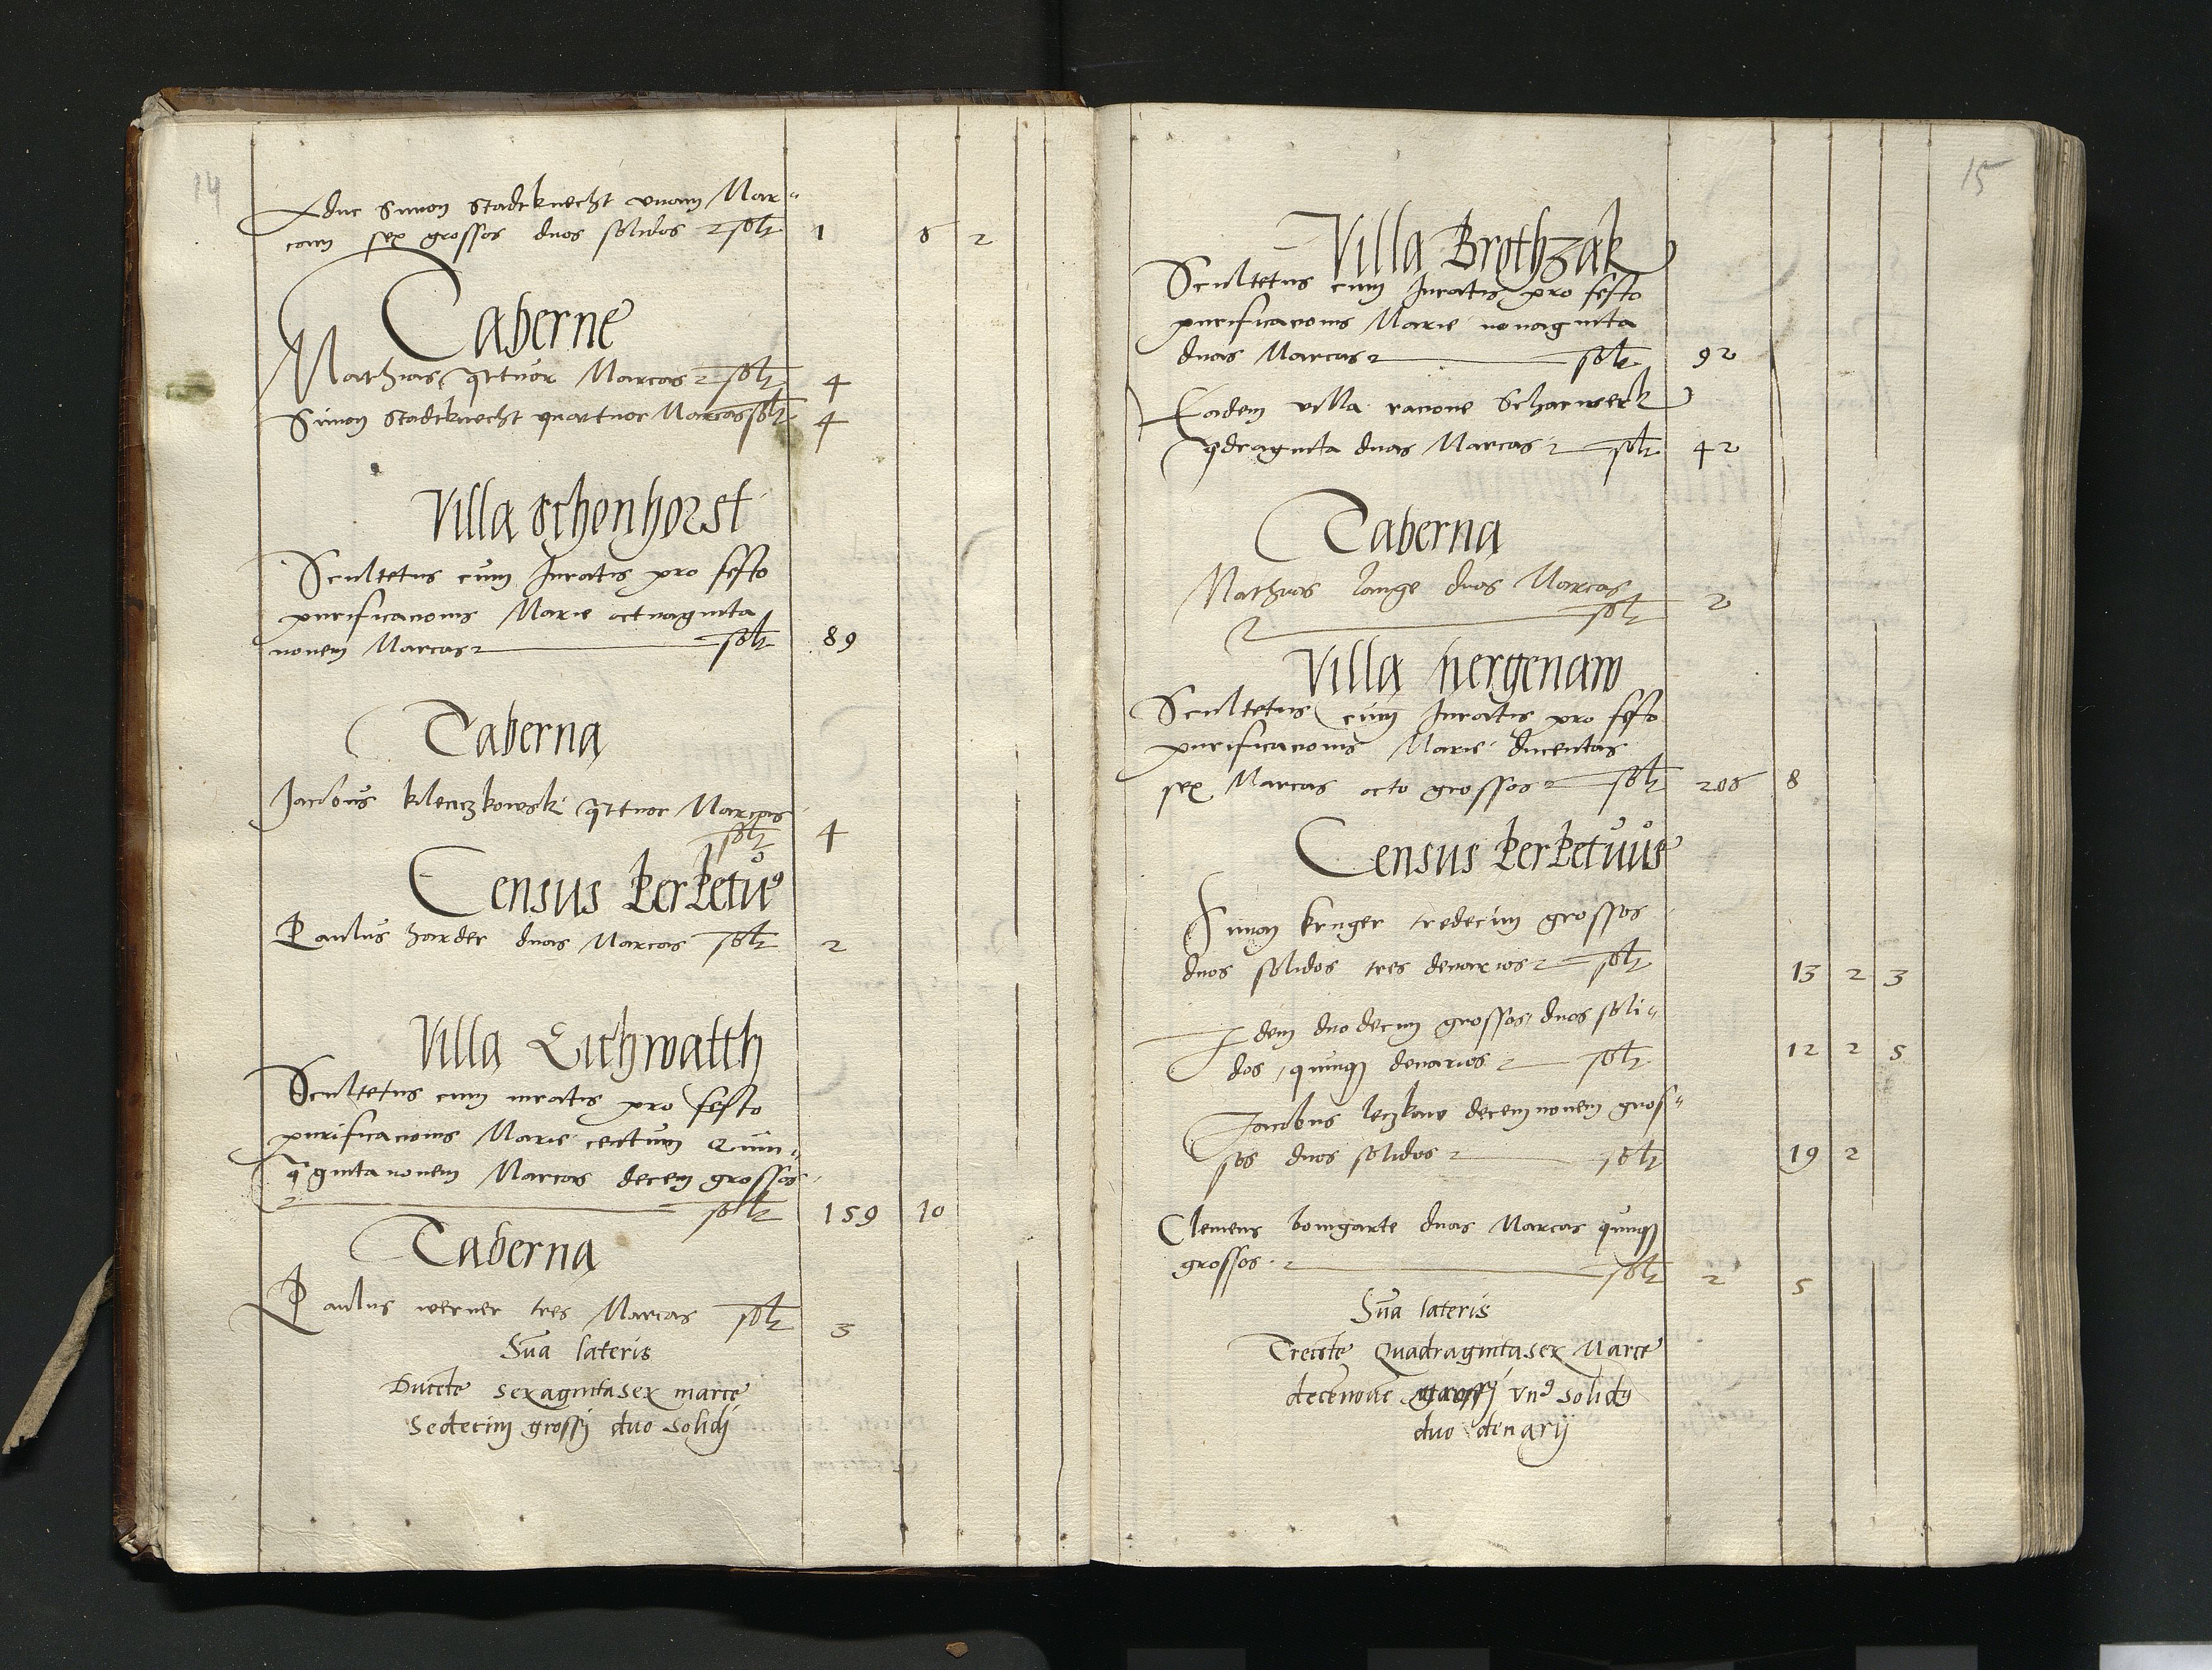 14
Aduc Simon Stadtknecht vnam Mar-
cam sex grossos duos solidos solt 1 6 2
Taberne
Mathias qttuor Marcas solt 4
Simon Stadtknecht quattuor Marcas solt 4
Villa Schonhorst
Scultetus cum Iuratis pro festo
purificacionis Marie octuaginta
nouem Marcas solt 89
Taberna
Jacobus kleniczkowski qttuor Marcas
solt 4
Census Perpetu9
Paulus harder duas Marcas solt 2
Villa Eichwalth
Scultetus cum iuratis pro festo
purificacionis Marie centum Quin-
qginta nouem Marcas decem grossos
solt 159 10
Taberna
Paulus werner tres Marcas solt 3
Sua lateris
Ducete sexagintasex marce
Sedecim grossj duo solidj
15
Villa Brothzak
Scultetus cum Iuratis pro festo
purificacionis Marie nonaginta
duas Marcas solt 92
Eadem villa racione Scharwerk
qdraginta duas Marcas solt 42
Taberna
Mathias lange duas Marcas
solt 2
Villa hergenaw
Scultetus cum Iuratis pro festo
purificacionis Marie ducentas
sex Marcas octo grossos solt 206 8
Census Perpetuus
Simon kruger tredecim grossos
duos solidos tres denarios solt 13 2 3
Idem duodecim grossos duos soli-
dos quinq denarios solt 12 2 5
Jacobus leczkaw decemnouem gros-
sos duos solidos solt 19 2
Clemens bomgarte duas Marcas quinq
grossos solt 2 5
Sua lateris
Trecete Quadragintasex Marce
decenoue grossj vn9 solidg
duo denarij